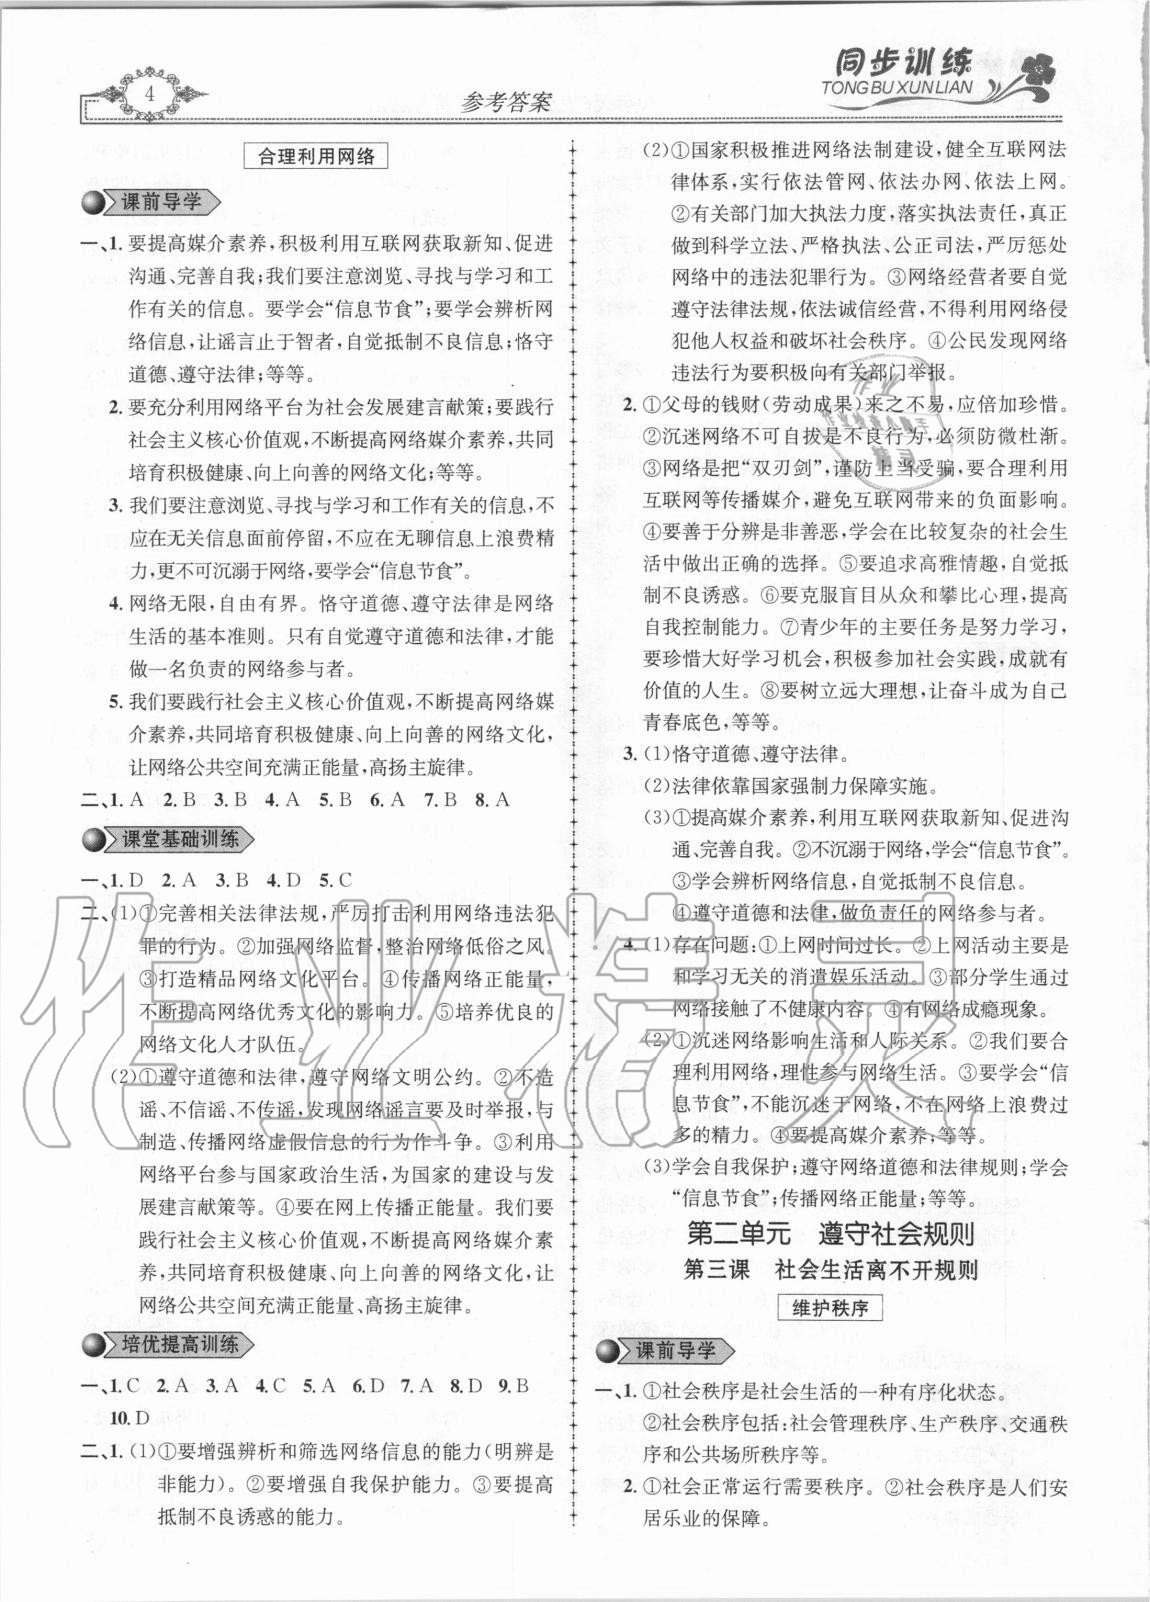 4
参考答案
同步训练
TONGBUXUNLIAN
合理利用网络
课前导学
一、1. 要提高媒介素养,积极利用互联网获取新知、促进
沟通、完善自我;我们要注意浏览、寻找与学习和工
作有关的信息。要学会“信息节食”;要学会辨析网
络信息,让谣言止于智者,自觉抵制不良信息;恪守
道德、遵守法律;等等。
2. 要充分利用网络平台为社会发展建言献策;要践行
社会主义核心价值观,不断提高网络媒介素养,共同
培育积极健康、向上向善的网络文化;等等。
3. 我们要注意浏览、寻找与学习和工作有关的信息,不
应在无关信息面前停留,不应在无聊信息上浪费精
力,更不可沉溺于网络,要学会“信息节食”。
4. 网络无限,自由有界。恪守道德、遵守法律是网络
生活的基本准则。只有自觉遵守道德和法律,才能
做一名负责的网络参与者。
5. 我们要践行社会主义核心价值观,不断提高网络媒
介素养,共同培育积极健康、向上向善的网络文化,
让网络公共空间充满正能量,高扬主旋律。
二、1. A 2. B 3. B 4. A 5. B 6. A 7. B 8. A
课堂基础训练
一、1. D 2. A 3. B 4. D 5. C
二、(1)①完善相关法律法规,严厉打击利用网络违法犯
罪的行为。②加强网络监督,整治网络低俗之风。
③打造精品网络文化平台。④传播网络正能量,
不断提高网络优秀文化的影响力。⑤培养优良的
网络文化人才队伍。
(2)①遵守道德和法律,遵守网络文明公约。②不造
谣、不信谣、不传谣,发现网络谣言要及时举报,与
制造、传播网络虚假信息的行为作斗争。③利用
网络平台参与国家政治生活,为国家的建设与发
展建言献策等。④要在网上传播正能量。我们要
践行社会主义核心价值观,不断提高网络媒介素
养,共同培育积极健康、向上向善的网络文化,让
网络公共空间充满正能量、高扬主旋律。
培优提高训练
一、1. C 2. A 3. A 4. C 5. A 6. A 7. A 8. D 9. B
10. D
二、1. (1)①要增强辨析和筛选网络信息的能力(明辨是
非能力)。②要增强自我保护能力。③要提高
抵制不良诱惑的能力。
(2)①国家积极推进网络法制建设,健全互联网法
律体系,实行依法管网、依法办网、依法上网。
②有关部门加大执法力度,落实执法责任,真正
做到科学立法、严格执法、公正司法,严厉惩处
网络中的违法犯罪行为。③网络经营者要自觉
遵守法律法规,依法诚信经营,不得利用网络侵
犯他人权益和破坏社会秩序。④公民发现网络
违法行为要积极向有关部门举报。
2. ①父母的钱财(劳动成果)来之不易,应倍加珍惜。
②沉迷网络不可自拔是不良行为,必须防微杜渐。
③网络是把“双刃剑”,谨防上当受骗,要合理利用
互联网等传播媒介,避免互联网带来的负面影响。
④要善于分辨是非善恶,学会在比较复杂的社会生
活中做出正确的选择。⑤要追求高雅情趣,自觉抵
制不良诱惑。⑥要克服盲目从众和攀比心理,提高
自我控制能力。⑦青少年的主要任务是努力学习,
要珍惜大好学习机会,积极参加社会实践,成就有
价值的人生。⑧要树立远大理想,让奋斗成为自己
青春底色,等等。
3. (1)恪守道德、遵守法律。
(2)法律依靠国家强制力保障实施。
(3)①提高媒介素养,利用互联网获取新知、促进沟
通、完善自我。②不沉溺于网络,学会“信息节食”。
③学会辨析网络信息,自觉抵制不良信息。
④遵守道德和法律,做负责任的网络参与者。
4. (1)存在问题:①上网时间过长。②上网活动主要是
和学习无关的消遣娱乐活动。③部分学生通过
网络接触了不健康内容。④有网络成瘾现象。
(2)①沉迷网络影响生活和人际关系。②我们要合
理利用网络,理性参与网络生活。③要学会“信
息节食”,不能沉迷于网络,不在网络上浪费过
多的精力。④要提高媒介素养,等等。
(3)学会自我保护;遵守网络道德和法律规则;学会
“信息节食”;传播网络正能量;等等。
第二单元 遵守社会规则
第三课 社会生活离不开规则
维护秩序
课前导学
一、1. ①社会秩序是社会生活的一种有序化状态。
②社会秩序包括:社会管理秩序、生产秩序、交通秩
序和公共场所秩序等。
2. ①社会正常运行需要秩序。②社会秩序是人们安
居乐业的保障。
作业精灵